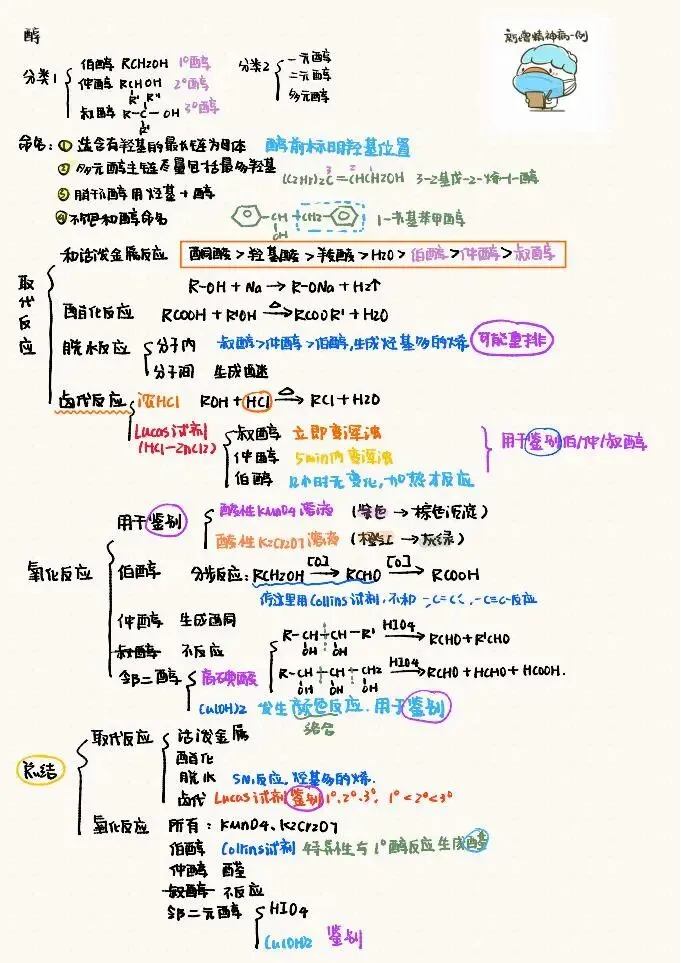 醇
新增精神病一例
分类1 伯醇 RCH2OH 1°醇
仲醇 RCHOH 2°醇
R'
叔醇 R-C-OH 3°醇
R''
R'
分类2 一元醇
二元醇
多元醇
命名: ① 选含有羟基的最长链为母体 醇前标明羟基位置
② 多元醇主链尽量包括最多羟基
(C2H5)2C=CHCH2OH 3-乙基戊-2-烯-1-醇
3 2 1
③ 脂环醇用烃基+醇
④ 不饱和醇命名
CH + CH2 1-苯基苯甲醇
OH
取代反应
和活泼金属反应 酮酸>羟基酸>羧酸>H2O>伯醇>仲醇>叔醇
R-OH + Na → R-ONa + H2↑
酯化反应 RCOOH + R'OH △→ RCOOR' + H2O
脱水反应 分子内 叔醇>仲醇>伯醇,生成烃基多的烯 可能重排
分子间 生成醚
卤代反应 浓HCl ROH + HCl △→ RCl + H2O
Lucas试剂 叔醇 立即变浑浊
(HCl-ZnCl2) 仲醇 5min内变浑浊
伯醇 1小时无变化,加热才反应
用于鉴别伯/仲/叔醇
氧化反应
用于鉴别 酸性KMnO4溶液 (紫色→棕色沉淀)
酸性K2Cr2O7溶液 (橙红→灰绿)
伯醇 分步反应: RCH2OH [O]→ RCHO [O]→ RCOOH
停这里用Collins试剂,不和-C=C-、-C≡C-反应
仲醇 生成酮
叔醇 不反应
邻二醇 高碘酸 R-CH-CH-R' HIO4→ RCHO + R'CHO
OH OH
R-CH-CH-CH2 HIO4→ RCHO + HCHO + HCOOH.
OH OH OH
Cu(OH)2 发生颜色反应,用于鉴别
络合
总结
取代反应 活泼金属
酯化
脱水 SN1反应,烃基多的烯.
卤代 Lucas试剂鉴别1°.2°.3°. 1°<2°<3°
氧化反应 所有: KMnO4、K2Cr2O7
伯醇 Collins试剂 特异性与1°醇反应生成醛
仲醇 酮
叔醇 不反应
邻二元醇 HIO4
Cu(OH)2 鉴别